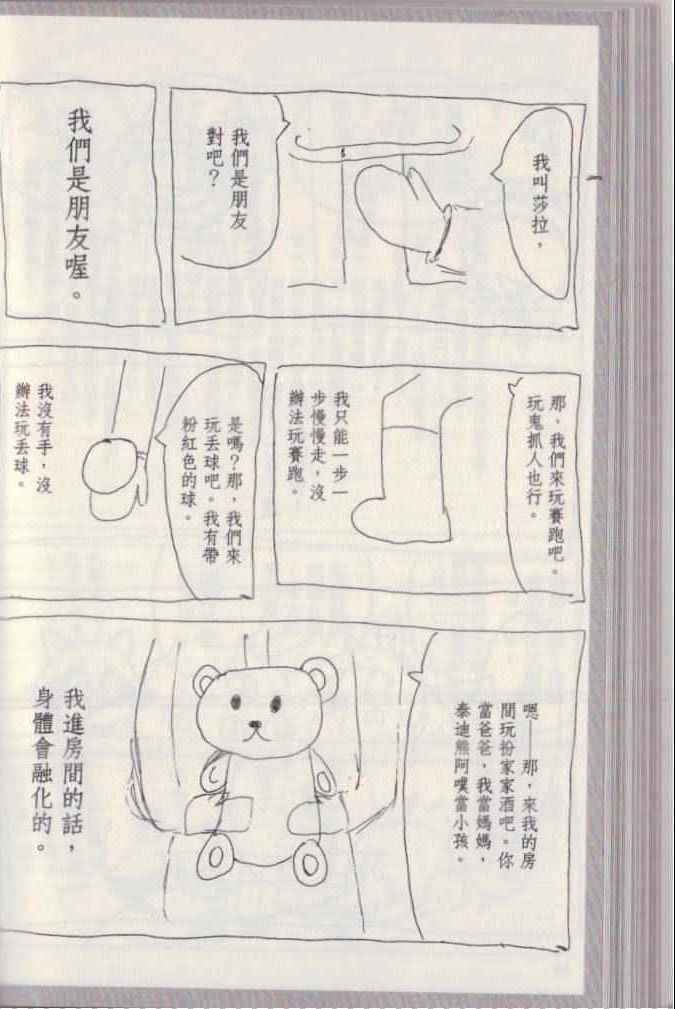 我叫莎拉，
我們是朋友
對吧？
我們是朋友喔。
那，我們來玩賽跑吧。
玩鬼抓人也行。
我只能一步一
步慢慢走，沒
辦法玩賽跑。
是嗎？那，我們來
玩丟球吧。我有帶
粉紅色的球。
我沒有手，沒
辦法玩丟球。
嗯——那，來我的房
間玩扮家家酒吧。你
當爸爸，我當媽媽，
泰迪熊阿噗當小孩。
我進房間的話，
身體會融化的。